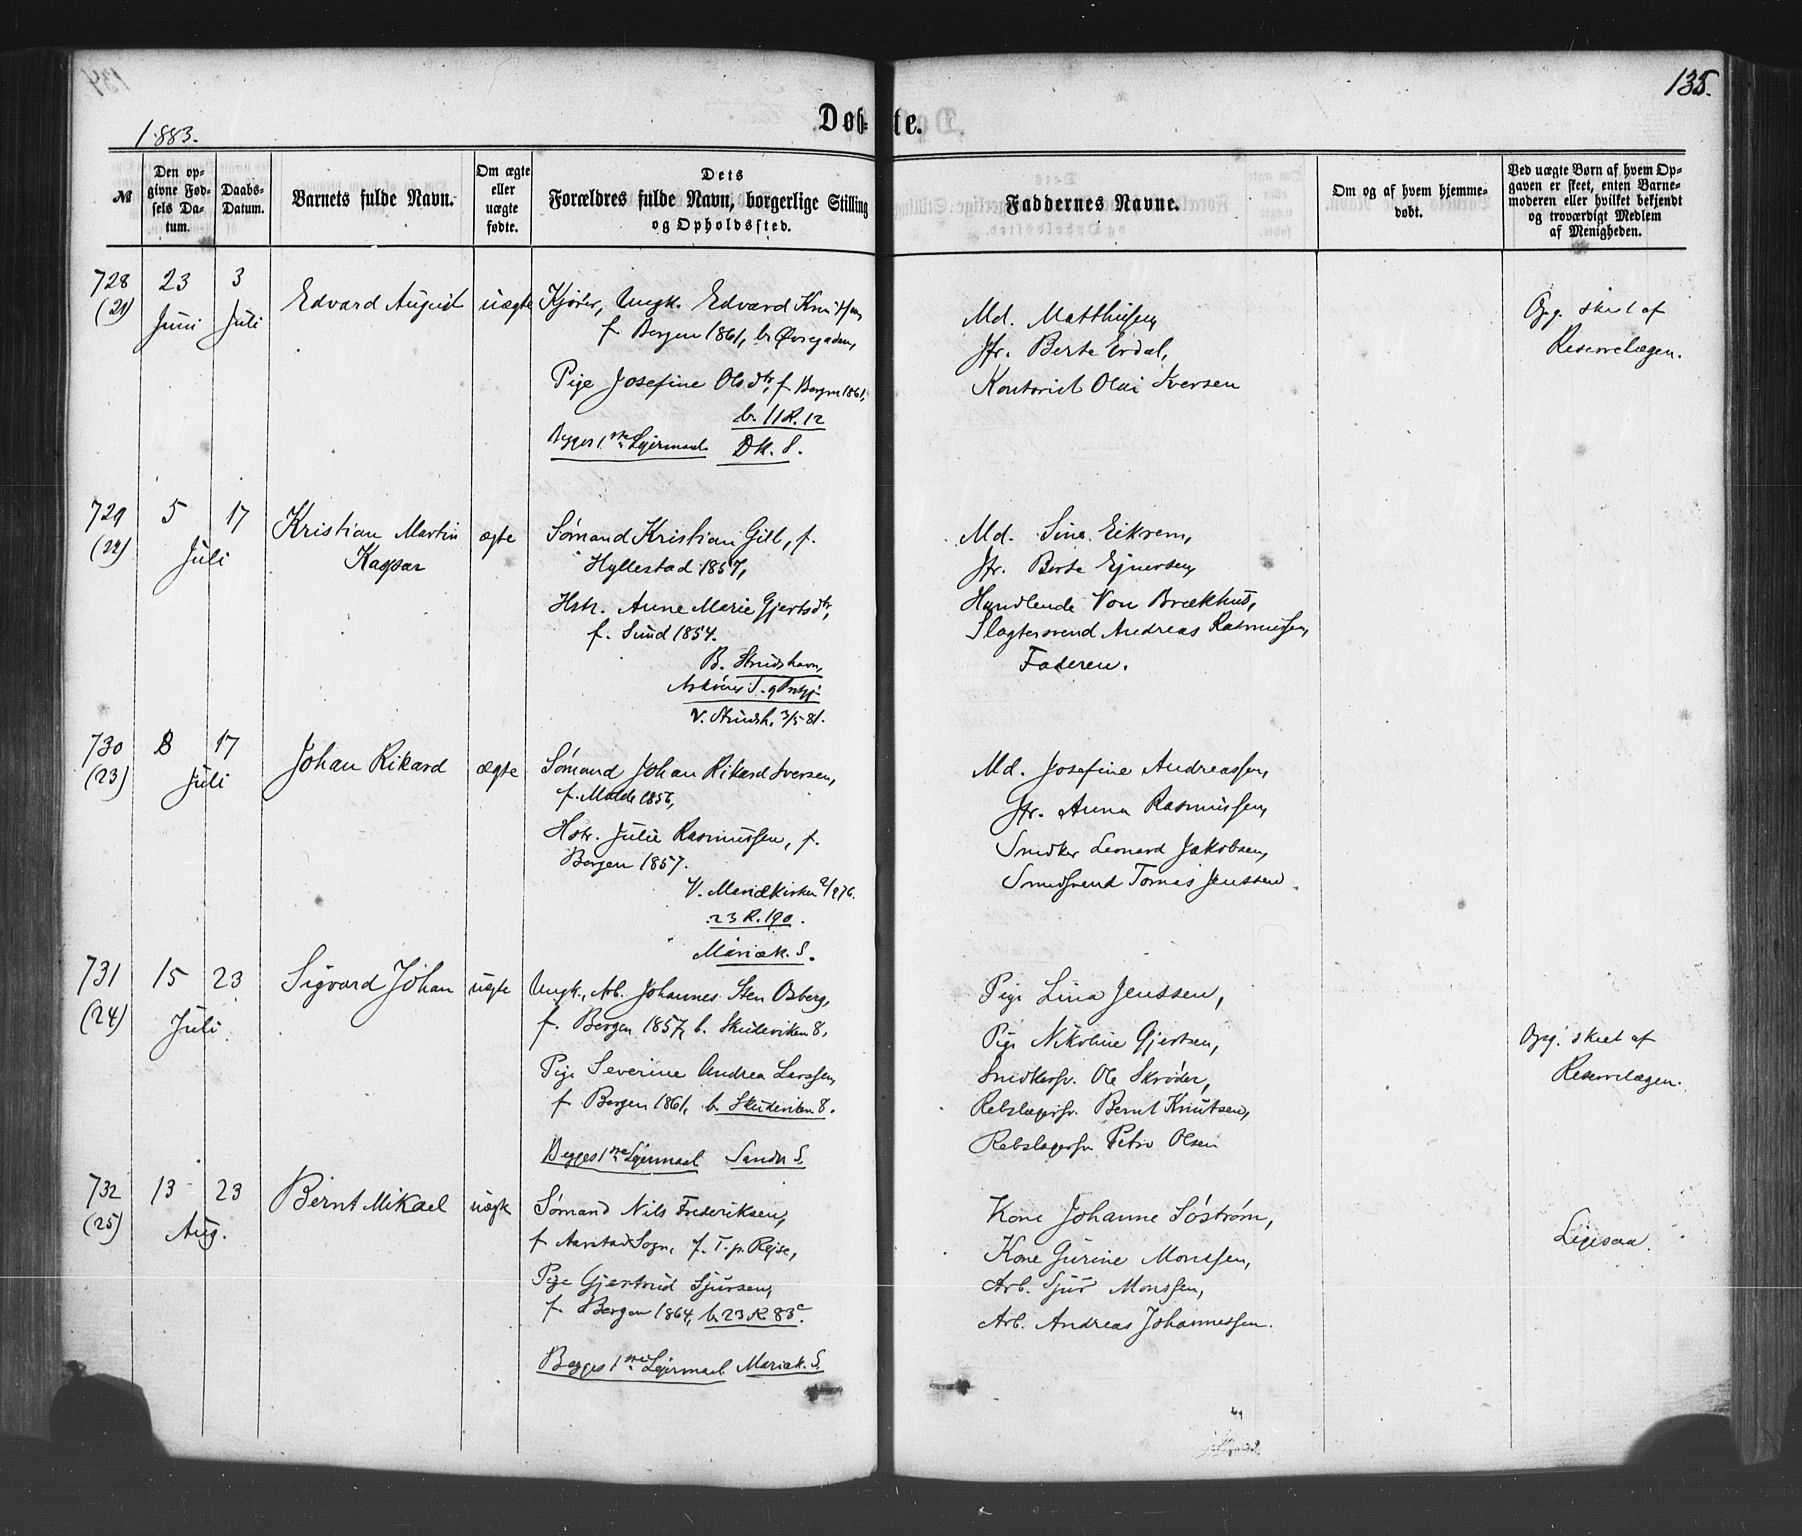 135.
Døbte.
1883.
№
Den opgivne Fødsels Datum.
Daabs-Datum.
Barnets fulde Navn.
Om ægte eller uægte fødte.
Dets Forældres fulde Navn, borgerlige Stilling og Opholdssted.
Faddernes Navne.
Om og af hvem hjemmedøbt.
Ved uægte Børn af hvem Opgaven er skeet, enten Barnemoderen eller hvilket bekjendt og troværdigt Medlem af Menigheden.
728 (21)
23 Juni
3 Juli
Edvard August
uægte
Kjører, Ungk. Edvard Knutsen,
f Bergen 1861, b. Øvregaden,
Pige Josefine Olsdtr, f Bergen 1861,
b. 11 R. 12
Begges 1ste Lejermaal. DK. S.
Md. Matthisen,
Jfr. Berte Erdal,
Kontorist Olai Iversen
Opg. skeet af
Reservelægen.
729 (22)
5 17
Juli
Kristian Martin
Kaspar
ægte
Sømand Kristian Gill, f.
Hyllestad 1857,
Hstr. Anne Marie Gjertsdtr,
f. Sund 1854.
B. Strudshavn,
Askøens S. og Prstgj
V. Strudsh. 3/5 81.
Md. Sine Eikrem,
Jfr. Berte Ejnersen,
Handlende Von Brækhus,
Slagtersvend Andreas Rasmussen,
Faderen.
730 (23)
8 17
Juli
Johan Rikard
ægte
Sømand Johan Rikard Iversen,
f. Molde 1856,
Hstr. Julie Rasmussen, f.
Bergen 1857.
V. Mariækirken
23 R. 190.
Mariæk. S.
Md. Josefine Andreassen,
Jfr. Anna Rasmussen,
Snedker Leonard Jakobsen,
Smedsvend Tomas Jenssen.
731 (24)
15 23
Juli.
Sigvard Johan
uægte
Ungk., Arb. Johannes Sten Osberg,
f. Bergen 1857, b. Skudeviken 8,
Pige Severine Andrea Larssen,
f Bergen 1861, b. Skudeviken 8.
Begges 1ste Lejermaal Sandv S.
Pige Lina Jenssen,
Pige Nikoline Gjertsen,
Snidkersv. Ole Skrøder,
Rebslagersv. Bernt Knutsen,
Rebslagersv Petro Olsen
Opg. skeet af
Reservelægen.
732 (25)
13 23
Aug.
Bernt Mikael
uægte
Sømand Nils Frederiksen,
f Aarstad Sogn, f. T. p. Rejse,
Pige Gjertrud Sjursen,
f Bergen 1864, b. 23 R 83c.
Begges 1ste Lejermaal Mariæk. S.
Kone Johanne Søstrøm,
Kone Gurine Monssen,
Arb. Sjur Monssen,
Arb. Andreas Johannessen.
Ligesaa.